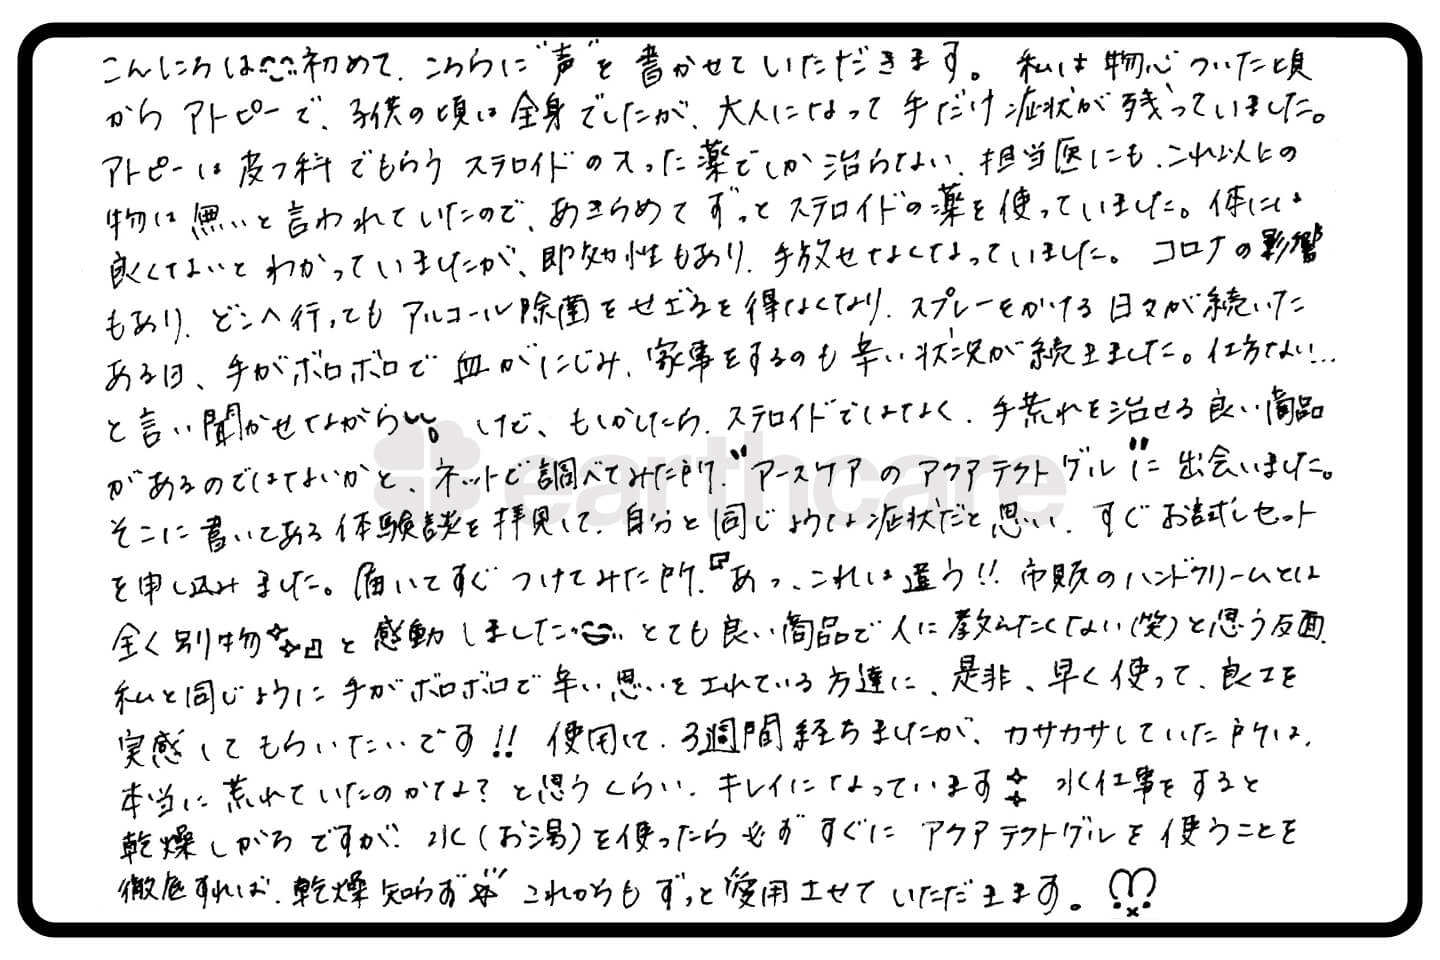 こんにちは初めて、こちらに"声"を書かせていただきます。私は物心ついた頃
からアトピーで、子供の頃は全身でしたが、大人になって手だけ症状が残っていました。
アトピーは皮フ科でもらうステロイドの入った薬でしか治らない、担当医にも、これ以上の
物は無いと言われていたので、あきらめてずっとステロイドの薬を使っていました。体には
良くないとわかっていましたが、即効性もあり、手放せなくなっていました。コロナの影響
もあり、どこへ行ってもアルコール除菌をせざるを得なくなり、スプレーをかける日々が続いた
ある日、手がボロボロで血がにじみ、家事をするのも辛い状況が続きました。仕方ない…
と言い聞かせながら。けど、もしかしたら、ステロイドではなく、手荒れを治せる良い商品
があるのではないかと、ネットで調べてみた所、"アースケアのアクアテクトゲル"に出会いました。
earthcare
そこに書いてある体験談を拝見して、自分と同じような症状だと思い、すぐお試しセット
を申し込みました。届いてすぐつけてみた所、『あっ、これは違う!!市販のハンドクリームとは
全く別物』と感動しましたとても良い商品で人に教えたくない(笑)と思う反面、
私と同じように手がボロボロで辛い思いをされている方達に、是非、早く使って、良さを
実感してもらいたいです!!使用して、3週間経ちましたが、カサカサしていた所は、
本当に荒れていたのかな?と思うくらい、キレイになっています水仕事をすると
乾燥しがちですが、水(お湯)を使ったら必ずすぐにアクアテクトゲルを使うことを
徹底すれば、乾燥知らず☆これからもずっと愛用させていただきます。